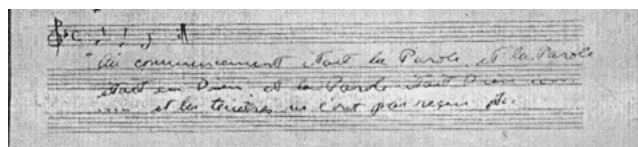 Au commencement était la Parole, et la Parole
était en Dieu, et la Parole était Dieu
et les tenebres ne l'ont pas reçu